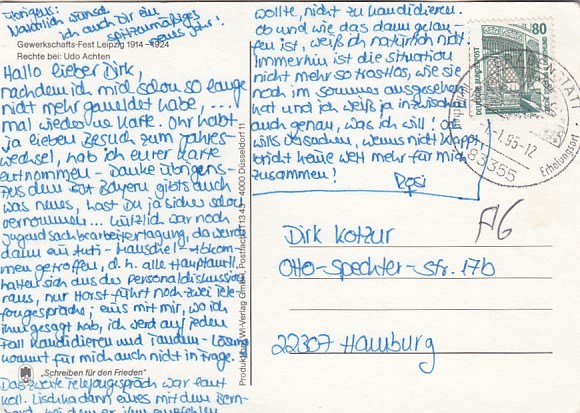 Übrigens:
Natürlich wünsch
ich auch Dir ein
spitzenmäßiges
neues Jahr!
Gewerkschafts-Fest Leipzig 1914 – 1924
Rechte bei: Udo Achten
Hallo lieber Dirk,
nachdem ich mich schon so lange
nicht mehr gemeldet habe, ...
mal wieder ne Karte. Ihr habt
ja lieben Besuch zum Jahres-
wechsel, hab ich eurer Karte
entnommen - Danke übrigens-
Aus dem Bayern gibts auch
was neues, hast Du ja sicher schon
vernommen... Kürzlich war noch
Jugendsachbearbeitertagung, da wurde
dann ein Anti-Mauschel-Abkom-
men getroffen, d.h. alle Hauptamtl.
halten sich aus der Personaldiskussion
raus, nur Horst führt noch zwei Tele-
fongespräche; eins mit mir, wo ich
ihm gesagt hab, ich werd auf jeden
Fall kandidieren und Tandem-Lösung
kommt für mich auch nicht in Frage.
Das zweite Telefongespräch war laut
Koll. Lischka dann eines mit dem Bern-
hard, bei dem er ihm empfohlen
wollte, nicht zu kandidieren.
Ob und wie das dann gelau-
fen ist, weiß ich natürlich nicht.
Immerhin ist die Situation
nicht mehr so trostlos, wie sie
noch im Sommer ausgesehen
hat und ich weiß ja inzwischen
auch genau, was ich will! Ich
wills versuchen, wenns nicht klappt,
bricht heute Welt mehr für mich
zusammen!
Rosi
"Schreiben für den Frieden"
Produktion: Wi-Verlag GmbH, Postfach 11 13 43 - 4000 Düsseldorf 11
80
DEUTSCHE BUNDESPOST
-1.95-12
83355
Erholungsort
A6
Dirk Kotzur
Otto-Speckter-Str. 17b
22307 Hamburg